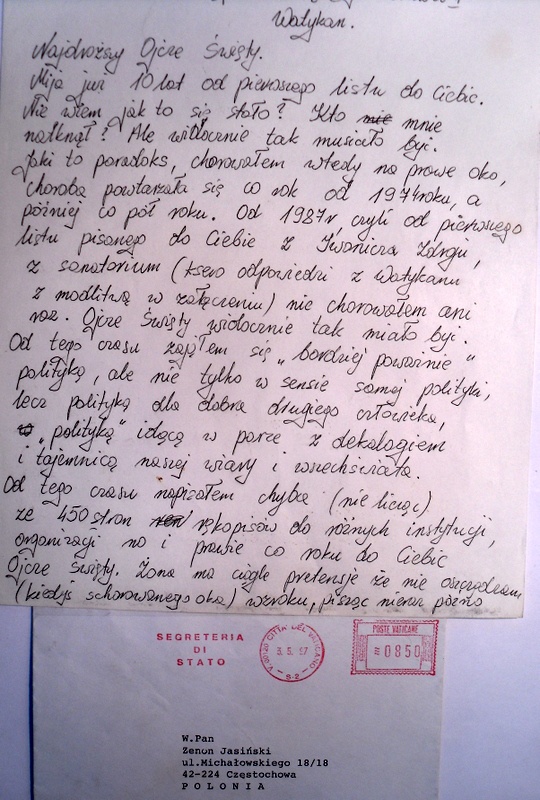 Watykan.
Najdroższy Ojcze Święty.
Mija już 10 lat od pierwszego listu do Ciebie.
Nie wiem jak to się stało? Kto nie mnie
natknął? Ale widocznie tak musiało być.
Jaki to paradoks, chorowałem wtedy na prawe oko,
choroba powtarzała się co rok od 1974 roku, a
później co pół roku. Od 1987r, czyli od pierwszego
listu pisanego do Ciebie z Iwonicza Zdroju,
z sanatorium (ksero odpowiedzi z Watykanu
z modlitwą w załączeniu) nie chorowałem ani
raz. Ojcze Święty widocznie tak miało być.
Od tego czasu zająłem się „bardziej poważnie"
polityką, ale nie tylko w sensie samej polityki,
lecz polityką dla dobra drugiego człowieka,
„polityką" idącą w parze z dekalogiem
i tajemnicą naszej wiary i wszechświata.
Od tego czasu napisałem chyba (nie licząc)
ze 450 stron rękopisów do różnych instytucji,
organizacji no i prawie co roku do Ciebie
Ojcze Święty. Żona ma ciągle pretensje że nie oszczędzam
(kiedyś schorowanego oka) wzroku, pisząc nieraz późno
SEGRETERIA
DI
STATO
CITTA' DEL VATICANO
3.5.97
S-2
POSTE VATICANE
0850
W.Pan
Zenon Jasiński
ul.Michałowskiego 18/18
42-224 Częstochowa
P O L O N I A